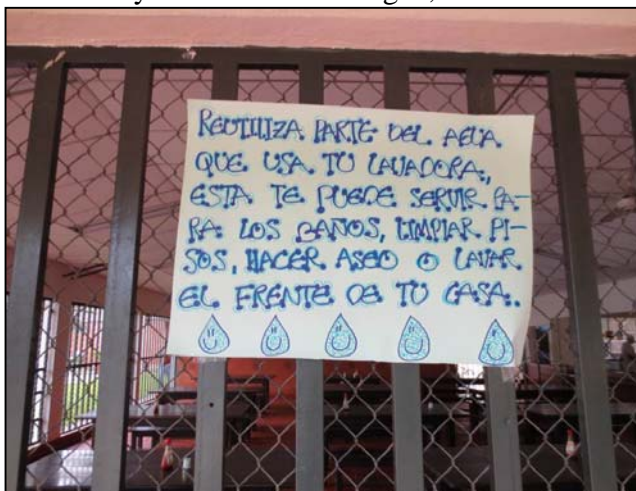 REUTILIZA PARTE DEL AGUA
QUE USA TU LAVADORA,
ESTA TE PUEDE SERVIR PA-
RA LOS BAÑOS, LIMPIAR PI-
SOS, HACER ASEO O LAVAR
EL FRENTE DE TU CASA..